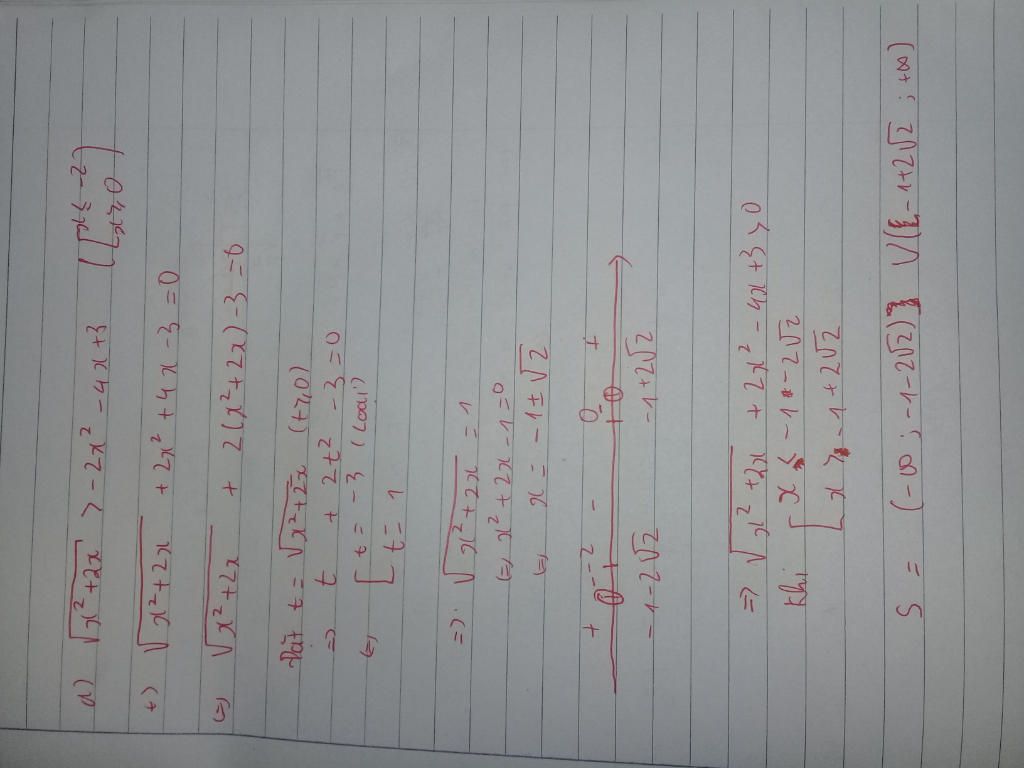 a) √(x²+2x) > -2x² - 4x + 3 [x ≤ -2
x ≥ 0)
+) √(x²+2x) + 2x² + 4x - 3 = 0
(=) √(x²+2x) + 2(x²+2x) - 3 = 0
Đặt t = √(x²+2x) (t ≥ 0)
=> t + 2t² - 3 = 0
(=) [t = -3 (loại)
[t = 1
=> √(x²+2x) = 1
(=) x²+2x-1=0
(=) x = -1±√2
+ -2 - 0 +
-1-2√2 -1+2√2
=> √(x²+2x) + 2x² - 4x + 3 > 0
Khi [x < -1-2√2
[x > -1+2√2
S = (-∞; -1-2√2) ∪ (-1+2√2; +∞)